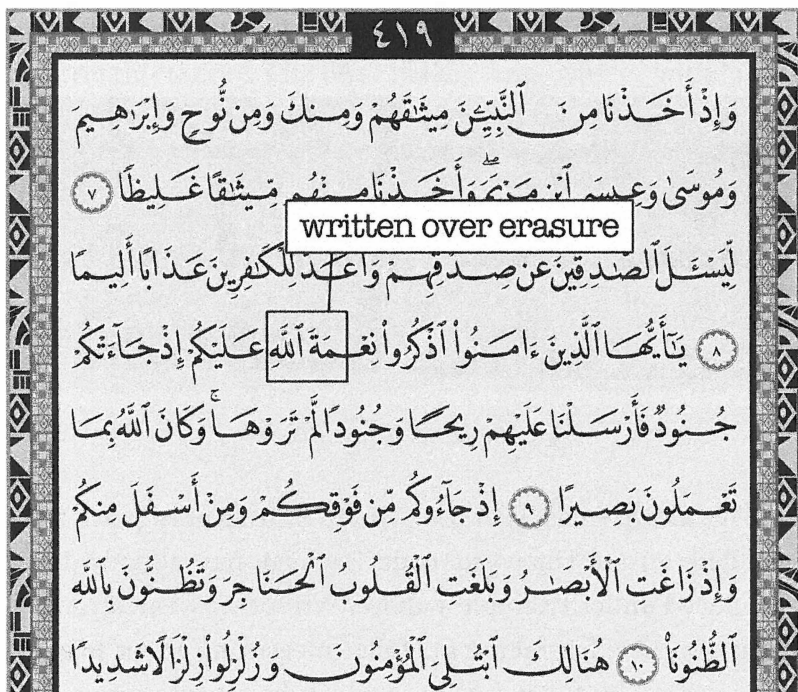 ٤١٩
وَإِذْ أَخَذْنَا مِنَ ٱلنَّبِيِّـۧنَ مِيثَٰقَهُمْ وَمِنكَ وَمِن نُّوحٍ وَإِبْرَٰهِيمَ
وَمُوسَىٰ وَعِيسَى ٱبْنِ مَرْيَمَ ۖ وَأَخَذْنَا مِنْهُم مِّيثَٰقًا غَلِيظًا ٧
written over erasure
لِّيَسْـَٔلَ ٱلصَّٰدِقِينَ عَن صِدْقِهِمْ وَأَعَدَّ لِلْكَٰفِرِينَ عَذَابًا أَلِيمًا
٨ يَٰٓأَيُّهَا ٱلَّذِينَ ءَامَنُوا۟ ٱذْكُرُوا۟ نِعْمَةَ ٱللَّهِ عَلَيْكُمْ إِذْ جَآءَتْكُمْ
جُنُودٌ فَأَرْسَلْنَا عَلَيْهِمْ رِيحًا وَجُنُودًا لَّمْ تَرَوْهَا ۚ وَكَانَ ٱللَّهُ بِمَا
تَعْمَلُونَ بَصِيرًا ٩ إِذْ جَآءُوكُم مِّن فَوْقِكُمْ وَمِنْ أَسْفَلَ مِنكُمْ
وَإِذْ زَاغَتِ ٱلْأَبْصَٰرُ وَبَلَغَتِ ٱلْقُلُوبُ ٱلْحَنَاجِرَ وَتَظُنُّونَ بِٱللَّهِ
ٱلظُّنُونَا۠ ١٠ هُنَالِكَ ٱبْتُلِىَ ٱلْمُؤْمِنُونَ وَزُلْزِلُوا۟ زِلْزَالًا شَدِيدًا